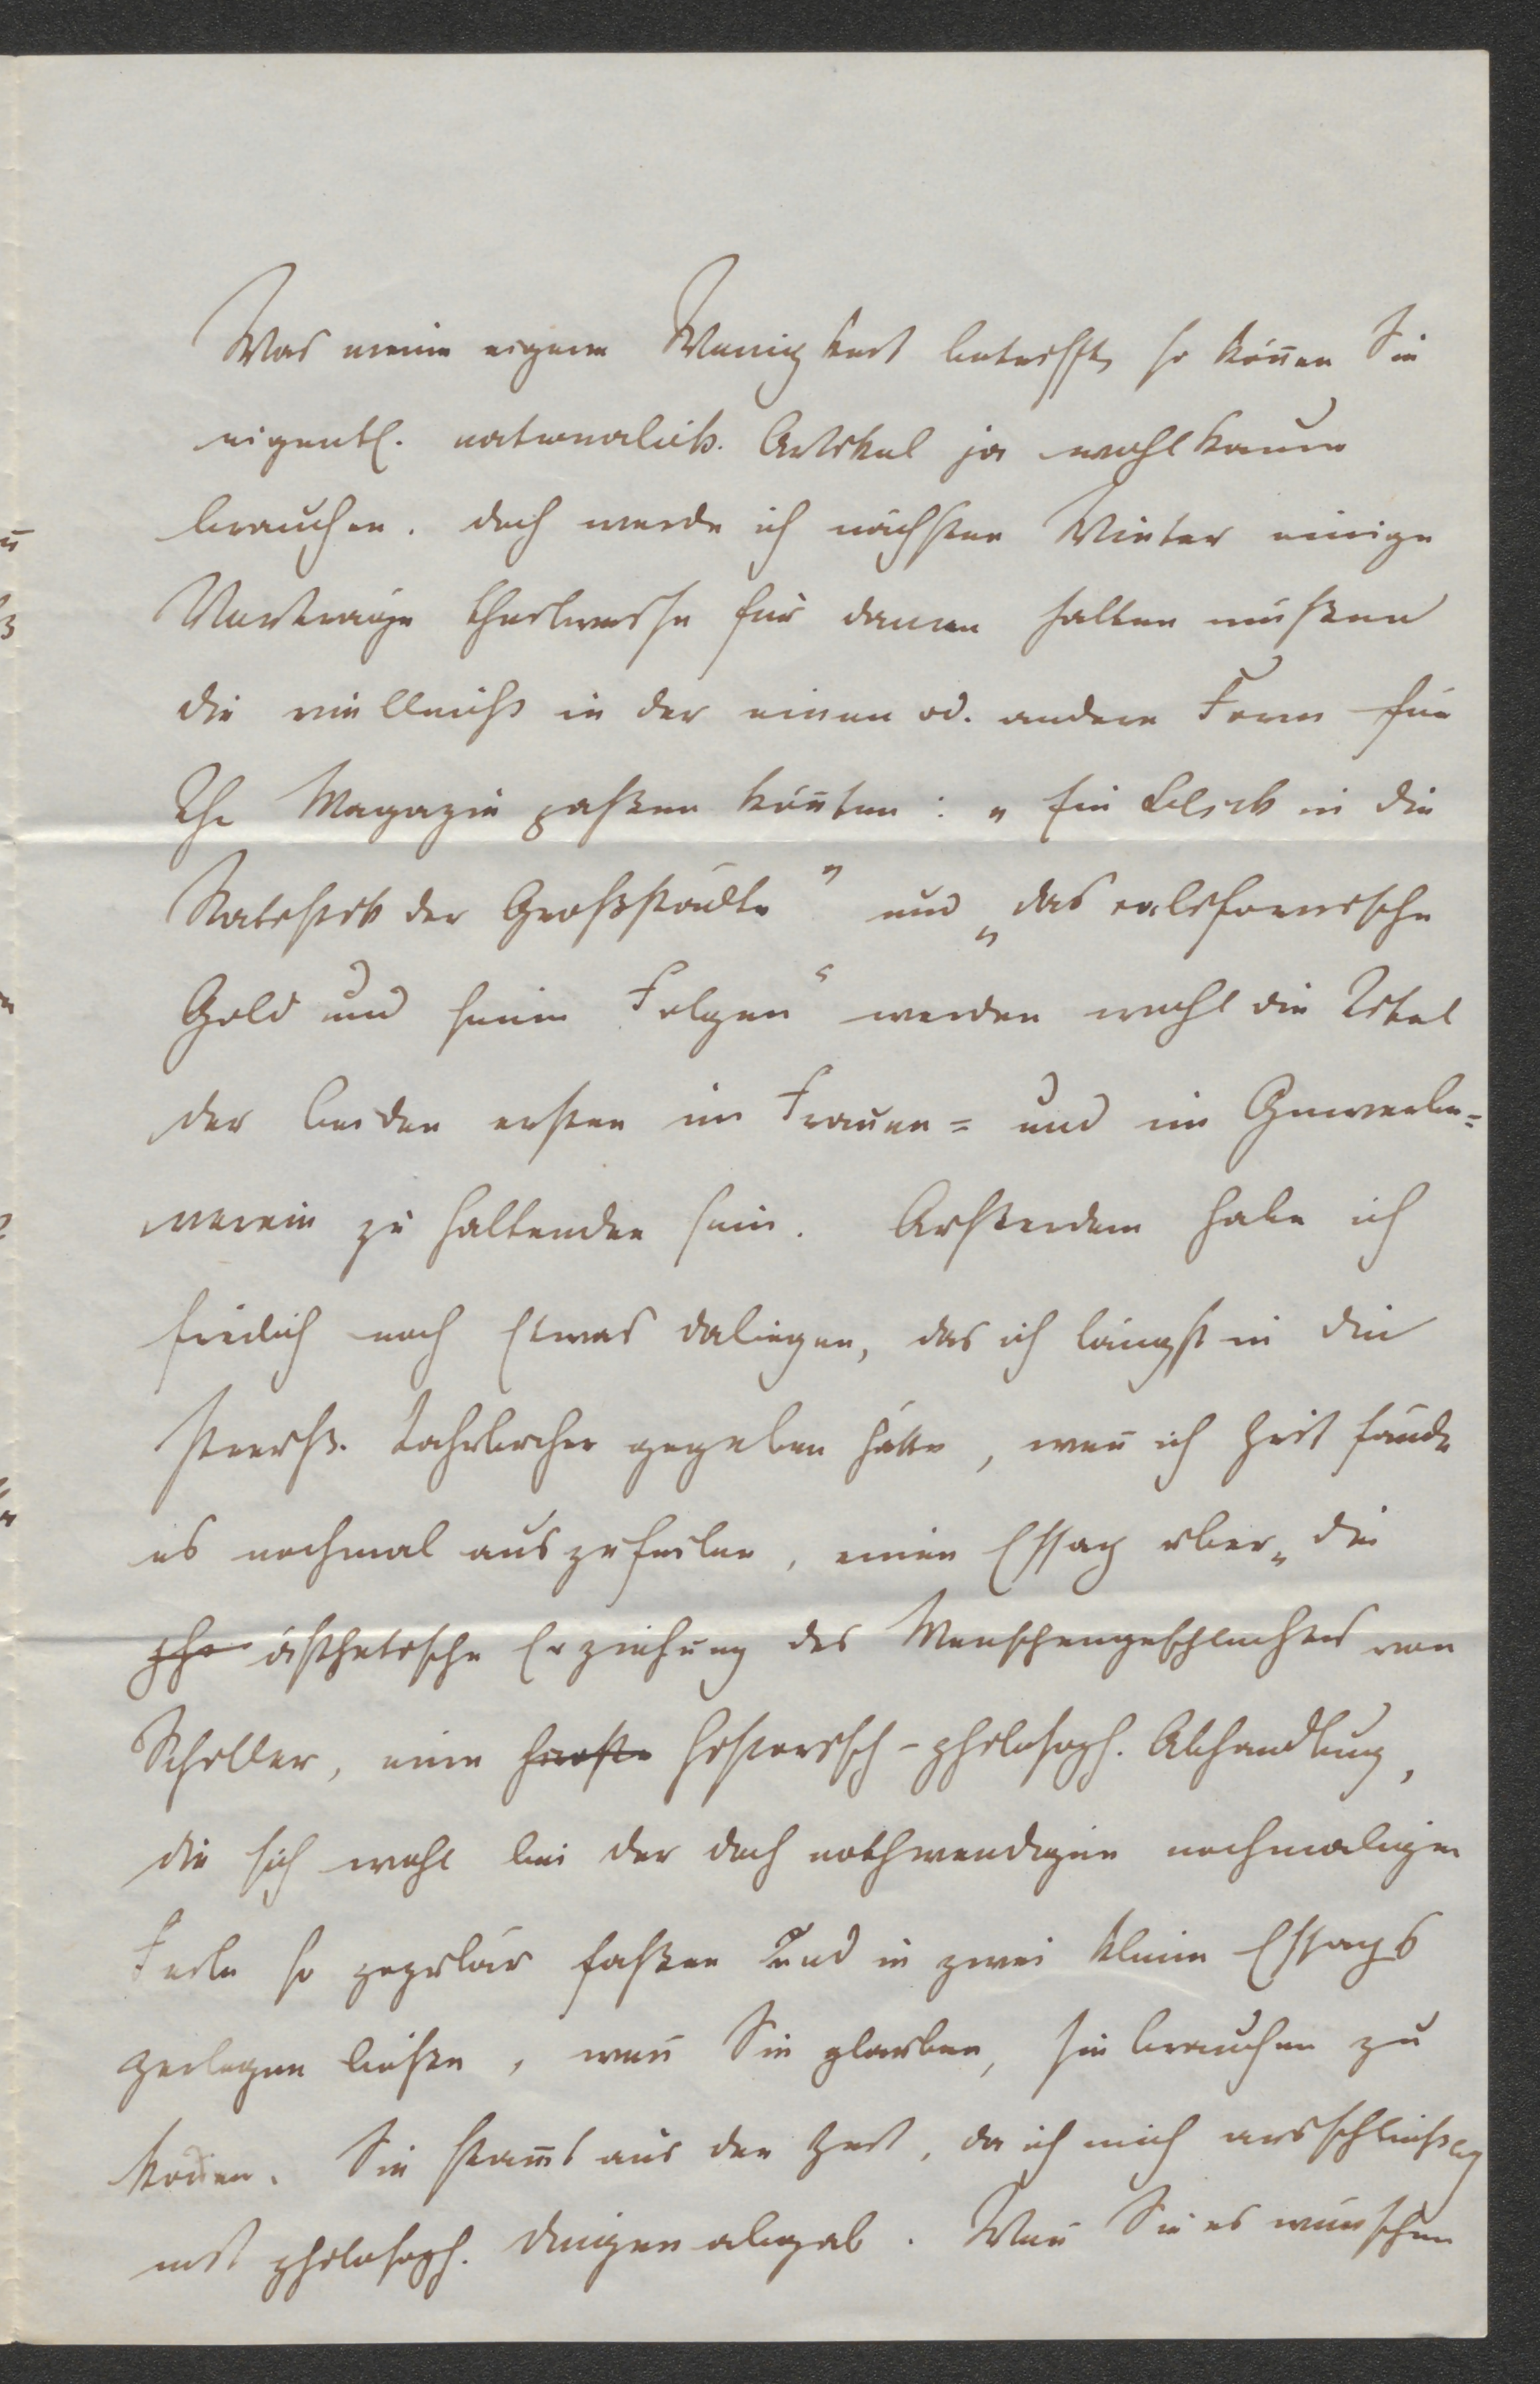 Was meine eigene Wenigkeit betrifft, so kön̄en Sie
eigentl. nationalök. Artikel ja wohl kaum
brauchen. Doch werde ich nächsten Winter einige
Vorträge theilweise für Damen halten müßen
die vielleicht in der einen od. andern Form für
Ihr Magazin paßen kön̄ten: „Ein Blick in die
Statistik der Großstädte" und „das californische
Gold und seine Folgen" werden wohl die Titel
der beiden ersten im Frauen= und im Gewerbe=
verein zu haltenden sein. Außerdem habe ich
freilich noch Etwas daliegen, das ich längst in die
Preuß. Jahrbücher gegeben hätte, wen̄ ich Zeit fände
es nochmal auszufeilen, einen Essay über „die
ästhetische Erziehung des Menschengeschlechtes von
Schiller, eine historisch-philosoph. Abhandlung,
die sich wohl bei der doch nothwendigen nochmaligen
Feile so populär faßen und in zwei kleine Essays
zerlegen ließe, wen̄ Sie glauben, sie brauchen zu
kön̄en. Sie stam̄t aus der Zeit, da ich mich ausschließlich
mit philosoph. Dingen abgab. Wen̄ Sie es wünschen